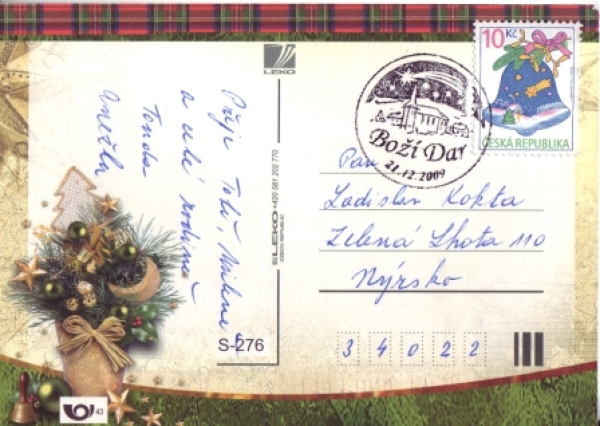 LEKO
10 Kč
ČESKÁ REPUBLIKA
Boží Dar
21.12.2009
Pan
Ladislav Kokta
Zelená Lhota 110
Nýrsko
3 4 0 2 2
Přeje Tolič, Milene a
a celé rodině
Tonda
Anežka
© LEKO • 420 581 202 770
CZECH REPUBLIC
S-276
43